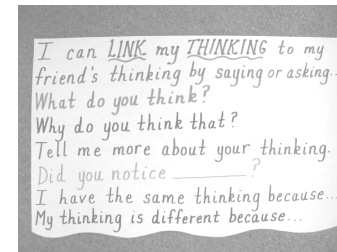 I can LINK my THINKING to my
friend's thinking by saying or asking...
What do you think?
Why do you think that?
Tell me more about your thinking.
Did you notice ________?
I have the same thinking because...
My thinking is different because...